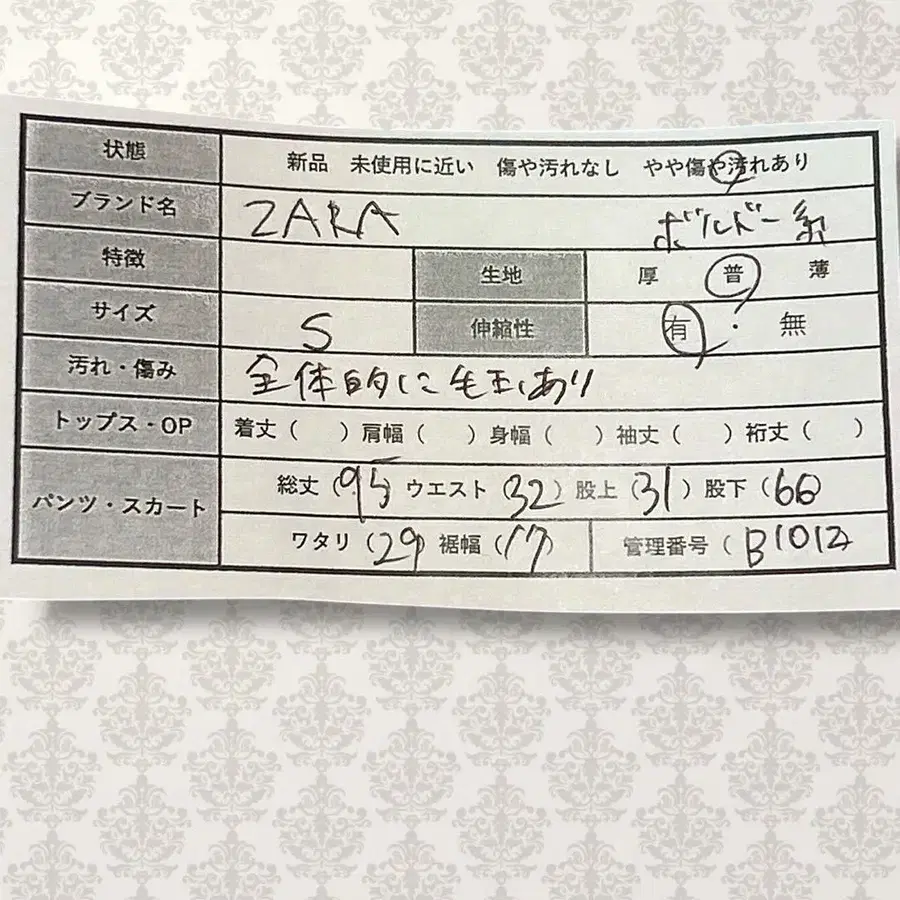 状態 新品 未使用に近い 傷や汚れなし やや傷や汚れあり
ブランド名 ZARA ボルドー系
特徴 生地 厚 普 薄
サイズ S 伸縮性 有・無
汚れ・傷み 全体的に毛玉あり
トップス・OP 着丈（ ）肩幅（ ）身幅（ ）袖丈（ ）裄丈（ ）
パンツ・スカート 総丈（95 ウエスト（32）股上（31）股下（66
ワタリ（29）裾幅（17）管理番号（B1012